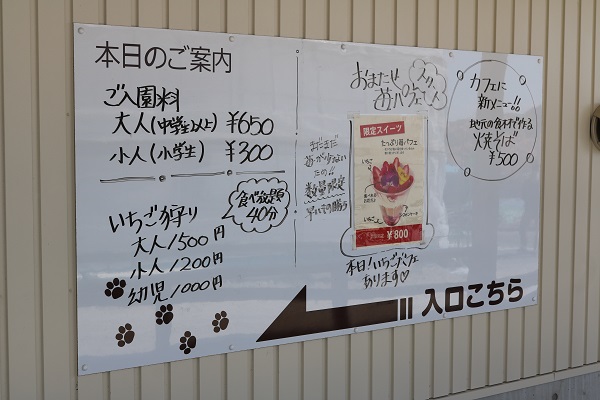 本日のご案内
ご入園料
大人(中学生以上) ¥650
小人(小学生) ¥300
いちご狩り
食べ放題
40分
大人1500円
小人1200円
幼児1000円
おまたせ
苺パフェ
まだまだ
数量限定
早い者勝ち
限定スイーツ
たっぷり苺パフェ
いちご
いちご
¥800
本日!いちごパフェ
あります♡
カフェに
新メニュー!!
地元の食材で作る
焼そば
¥500
入口こちら